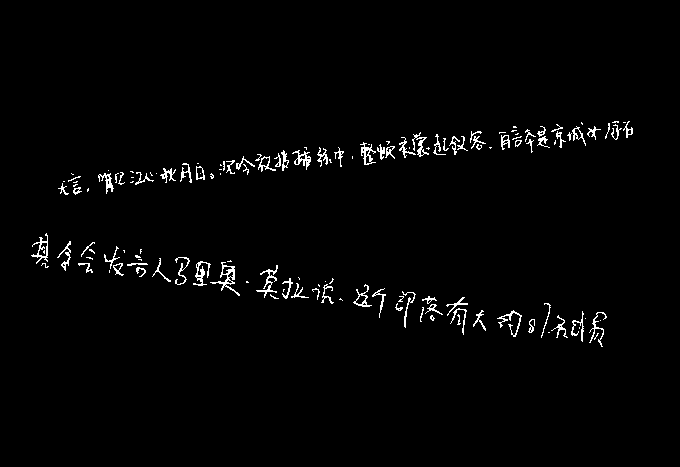 无言，唯见江心秋月白。沉吟放拨插弦中，整顿衣裳起敛容。自言本是京城女，家在
基金会发言人马里奥·莫拉说，这个部落有大约87名成员